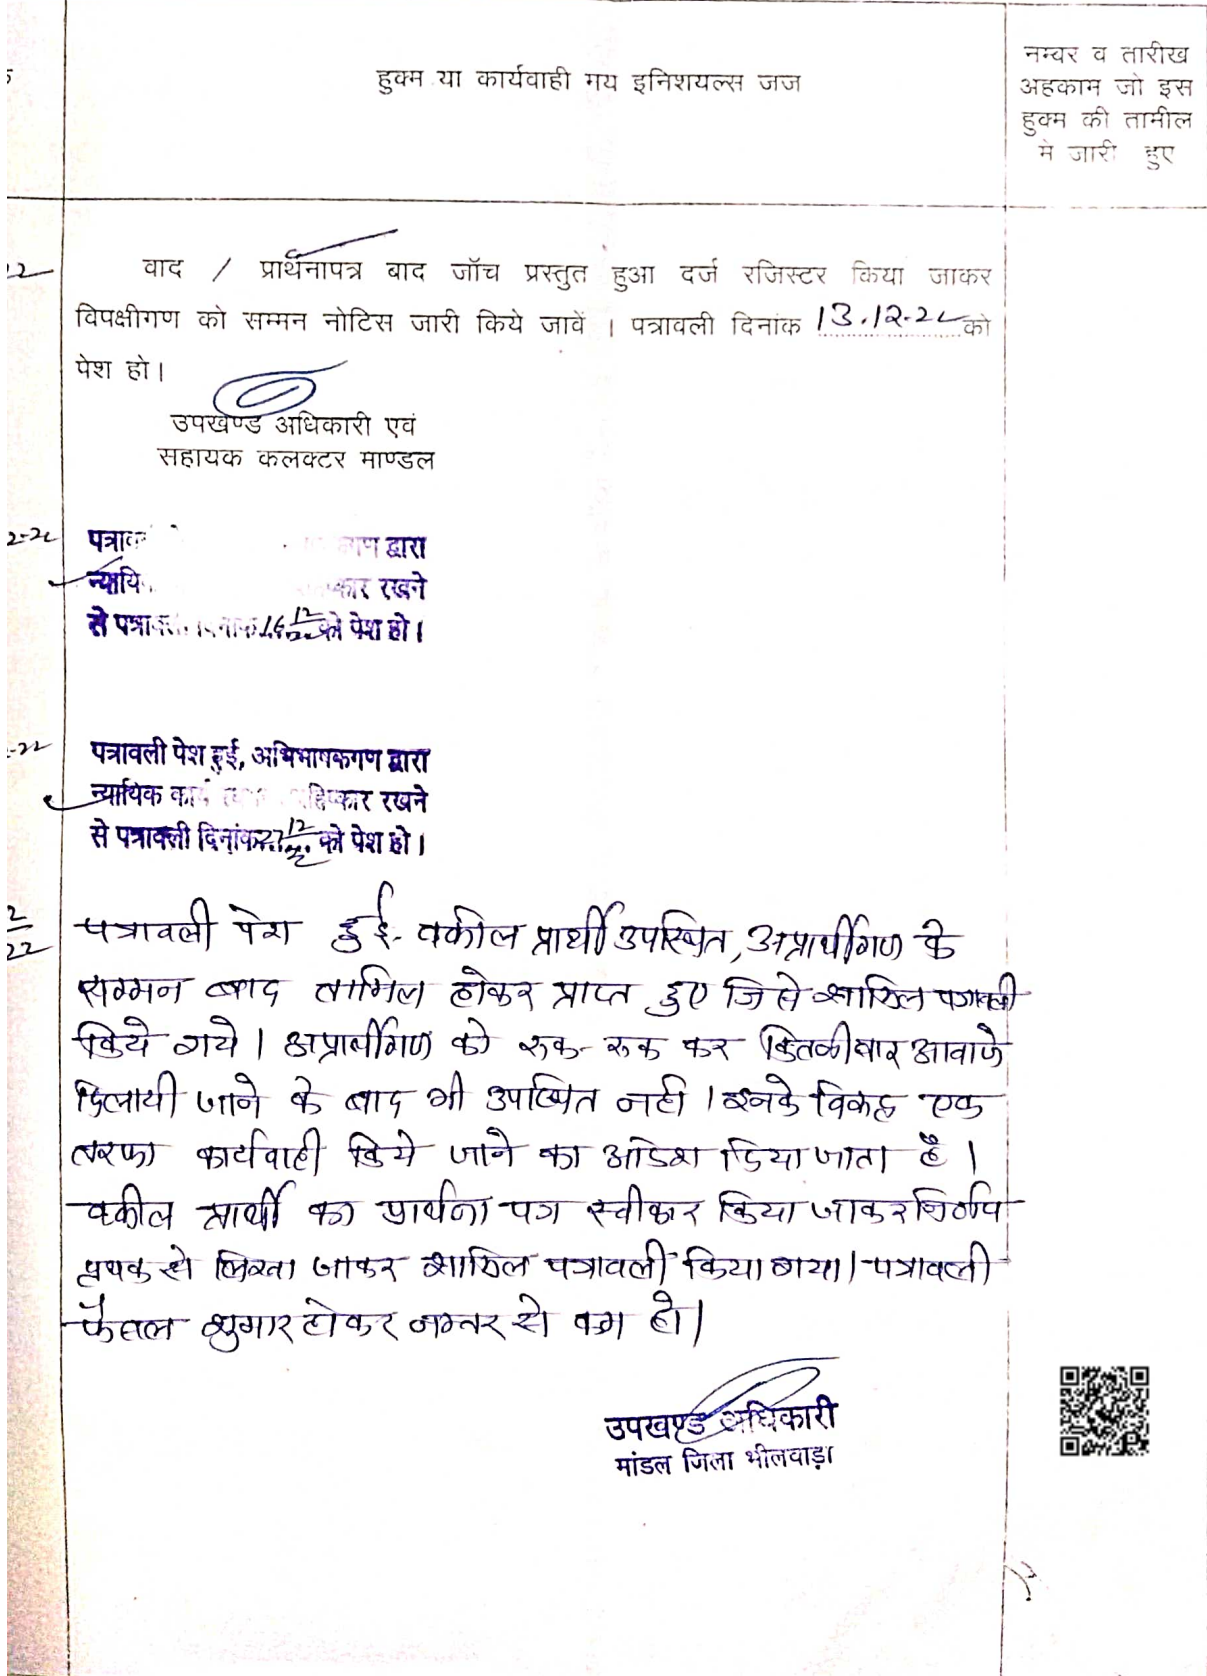 हुक्म या कार्यवाही मय इनिशयल्स जज
नम्बर व तारीख
अहकाम जो इस
हुक्म की तामील
मे जारी हुए
वाद / प्रार्थनापत्र बाद जॉच प्रस्तुत हुआ दर्ज रजिस्टर किया जाकर
विपक्षीगण को सम्मन नोटिस जारी किये जावें । पत्रावली दिनांक 13.12.22 को
पेश हो।
उपखण्ड अधिकारी एवं
सहायक कलक्टर माण्डल
द्वारा
रखने
से को पेश हो।
पत्रावली पेश हुई, अभिभाषकगण द्वारा
न्यायिक रखने
से पत्रावली दिनांक को पेश हो।
पत्रावली पेश हुई- वकील प्रार्थी उपस्थित, अप्रार्थीगण के
सम्मन बाद तामिल होकर प्राप्त हुए जिसे शामिल पत्रावली
किये गये। अप्रार्थीगण को रुक-रुक कर आवाजे
दिलायी जाने के बाद भी उपस्थित नही। इनके विरूद्ध एक
तरफा कार्यवाही किये जाने का आदेश दिया जाता है।
वकील प्रार्थी का प्रार्थना पत्र स्वीकार किया जाकर निर्णय
प्रथक से लिखा जाकर शामिल पत्रावली किया गया। पत्रावली
फैसल शुमार होकर नम्बर से कम हो।
उपखण्ड अधिकारी
मांडल जिला भीलवाड़ा